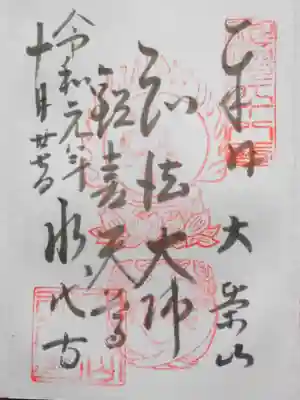 奉拝
大栄山
弘法大師
歓喜天尊
永代寺
令和元年
十月廿